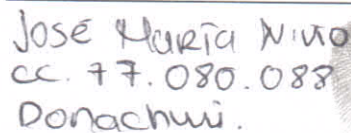 José María Niño
CC. 77.080.088
Donachui.